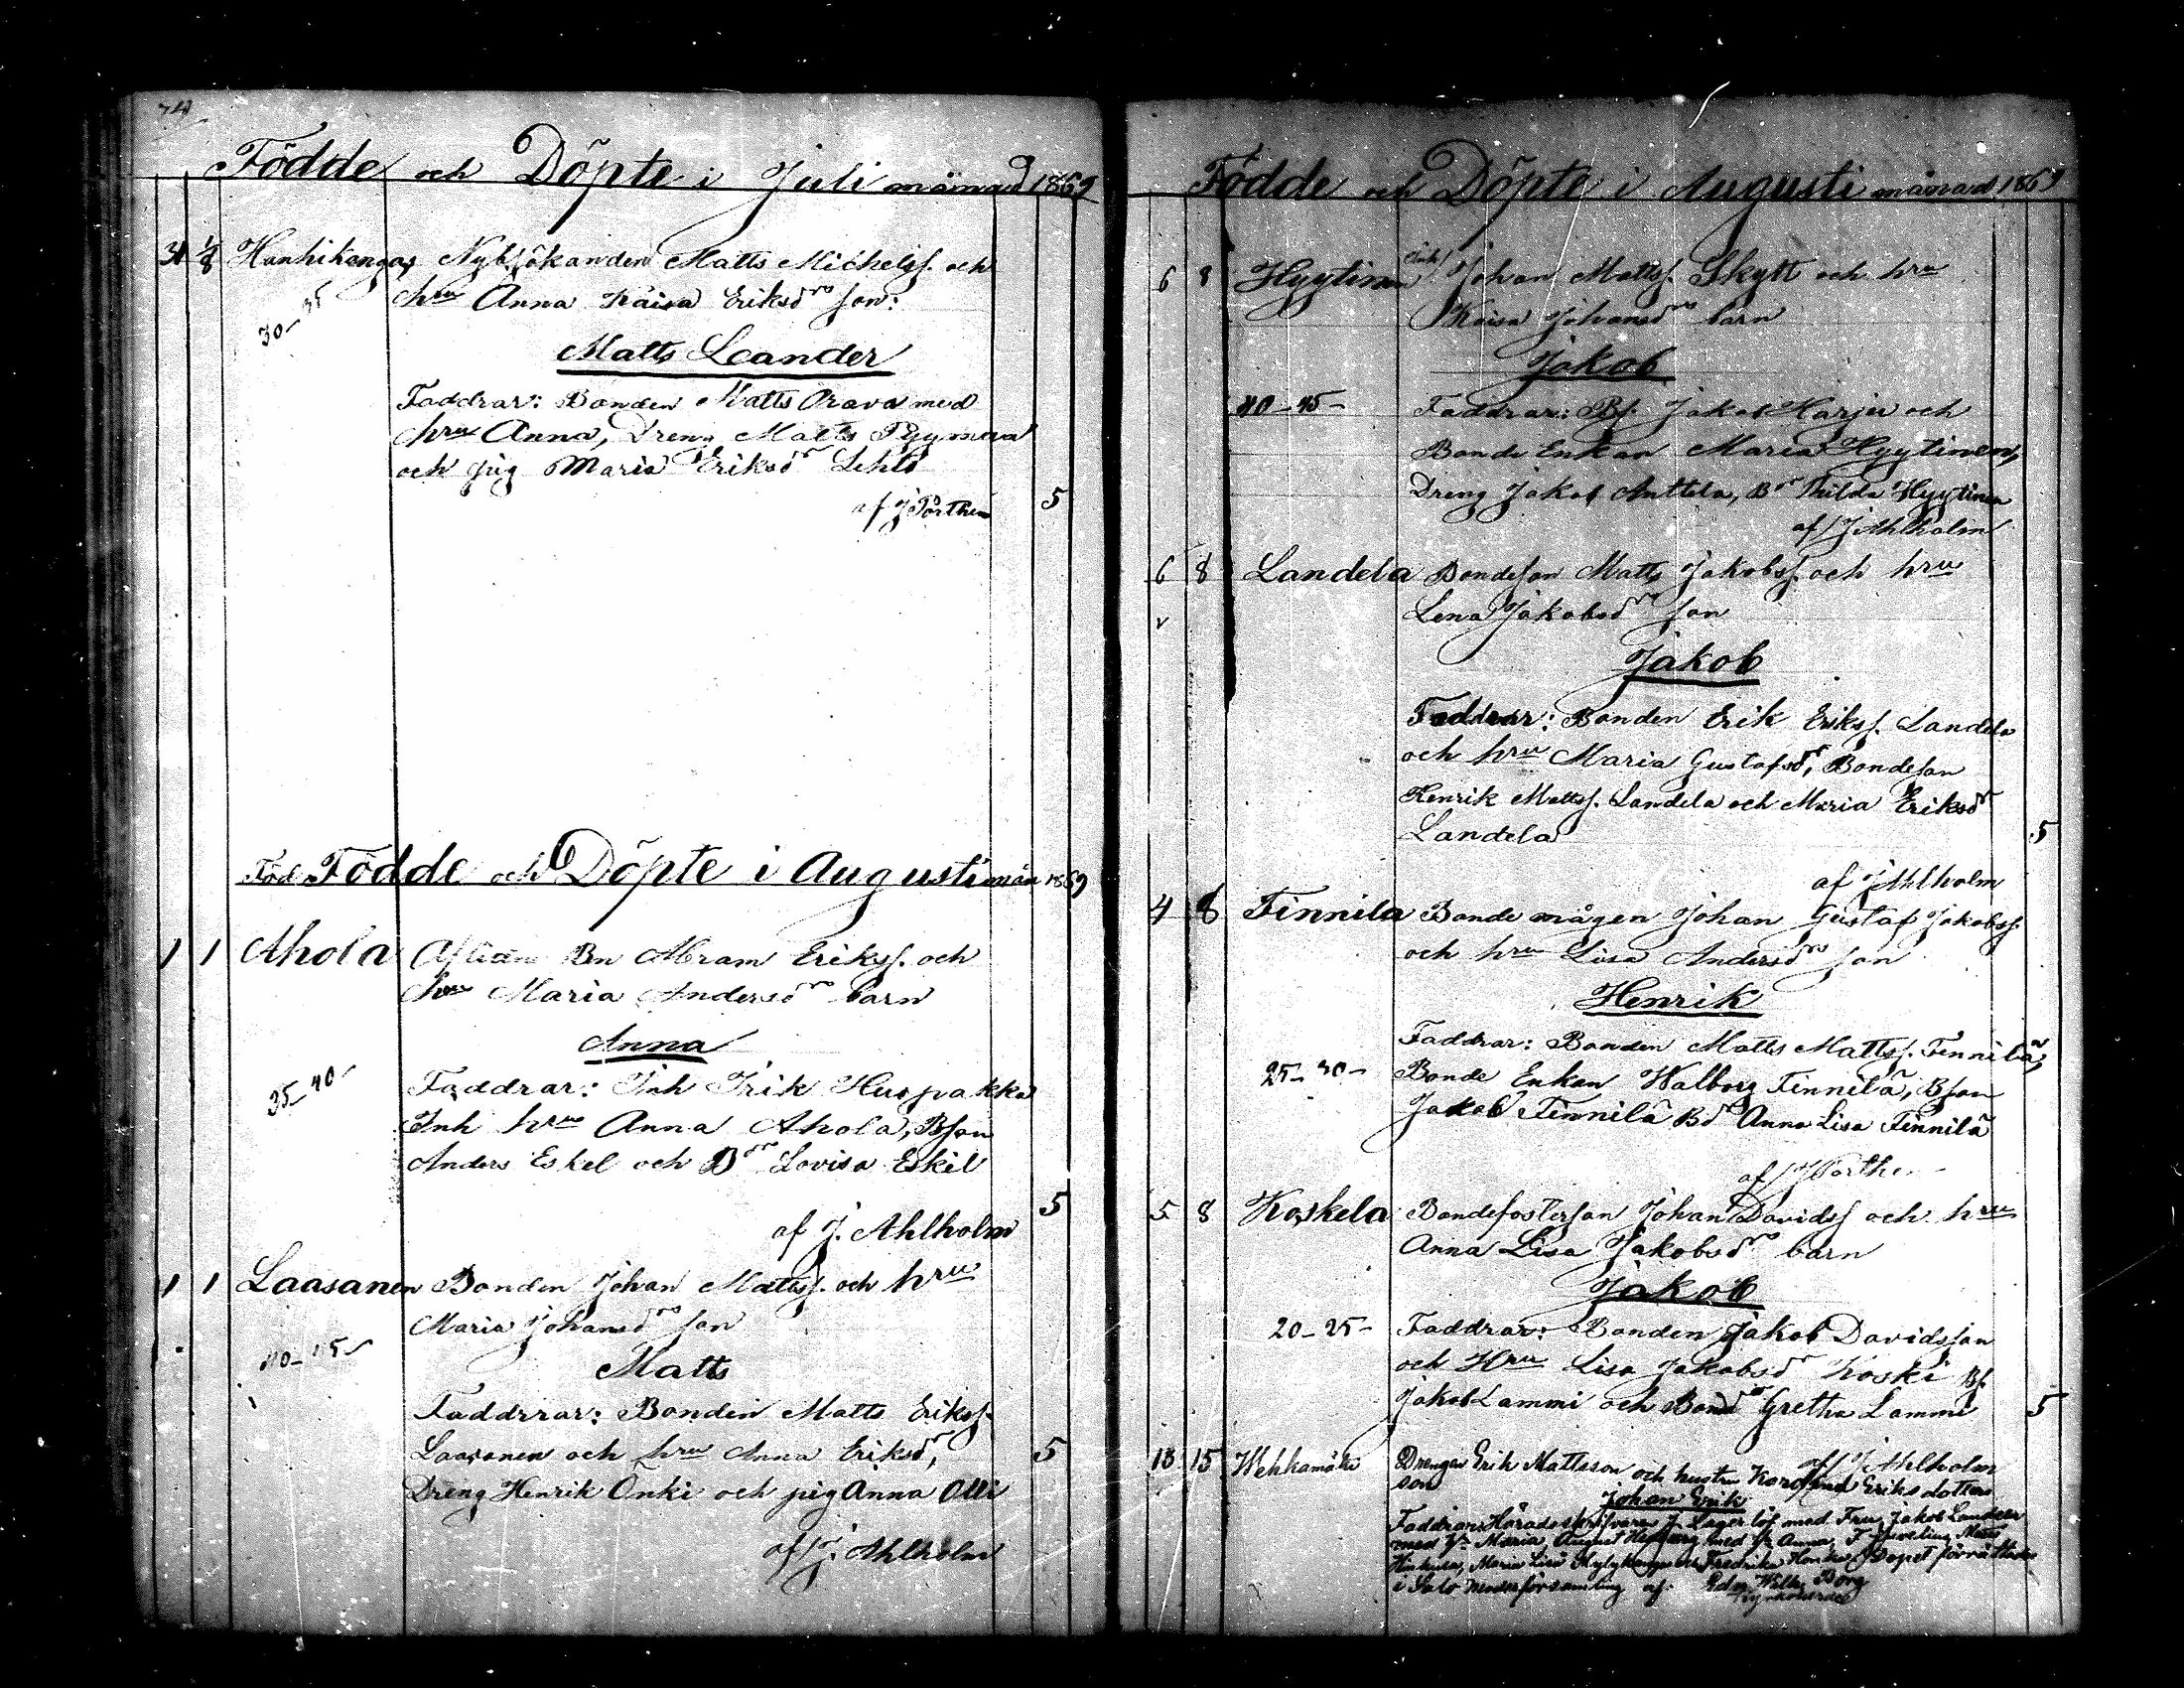 Födde och Döpte i Juli månad 1869
31 1/8 Hanhikangas Nybysökanden Matts Michelss. och
hru Anna Kaisa Eriksdrs son:
30-35
Matts Leander
Faddrar: Bonden Matts Orava med
hru Anna, Dreng Matts
och pig Maria Eriksdr Lehto
af J Porthen 5
Födde och Döpte i Augusti mån 1869
1 1 Ahola Bn Abram Erikss. och
hru Maria Andersdrs barn
Anna
35-40-
Faddrar: Inh Erik Huspakka
Inh hru Anna Ahola, Bson
Anders Eskel och Bdr Lovisa Eskil
5
af J. Ahlholm
1 1 Laasanen Bonden Johan Mattss. och hru
Maria Johansdrs son
40-45-
Matts
Faddrrar: Bonden Matts Erikss.
Laasanen och hru Anna Eriksdr, 5
Dreng Henrik Onki och pig Anna Olli
af J. Ahlholm
Födde och Döpte i Augusti månad 1869
6 8 Hyytinen Inh Johan Mattss. Skytt och hru
Kaisa Johansdrs barn
Jakob
40-45- Faddrar: Bs. Jakob Harju och
Bonde Enkan Maria Hyytinen,
Dreng Jakob Anttila, Bdr Hilda Hyytinen
af J Ahlholm
6 8 Landela Bondeson Matts Jakobss. och hru
Lena Jakobsdrs son
Jakob
Faddrar: Bonden Erik Erikss. Landela
och hru Maria Gustafsdr, Bondeson
Henrik Mattss. Landela och Maria Eriksdr
Landela 5
af J Ahlholm
4 8 Finnila Bonde mågen Johan Gustaf Jakobss.
och hru Lisa Andersdrs son
Henrik
Faddrar: Bonden Matts Mattss. Finnilä,
25-30- Bonde Enkan Walborg Finnilä, Bson
Jakob Finnilä Bdr Anna Lisa Finnilä
af J Porthen
5 8 Koskela Bondefosterson Johan Davidss och hru
Anna Lisa Jakobsdrs barn
Jakob
20-25- Faddrar: Bonden Jakob Davidsson
och Hru Lisa Jakobsdr Koski Bs.
Jakob Lammi och Bondr Gretha Lammi 5
af J Ahlholm
13 15 Wehkamäki Drengen Erik Mattsson och hustru Karolina Eriksdotters
son
Johan Erik
Faddrar: Häradsskrifvaren J. Lagerlöf med Fru, Jakob
med hu Maria, August med hu Anna, F Matts
Maria Lisa och Fredrika Honka, Dopet förrättades
i Salo moderförsamling af: Wilh. Borg